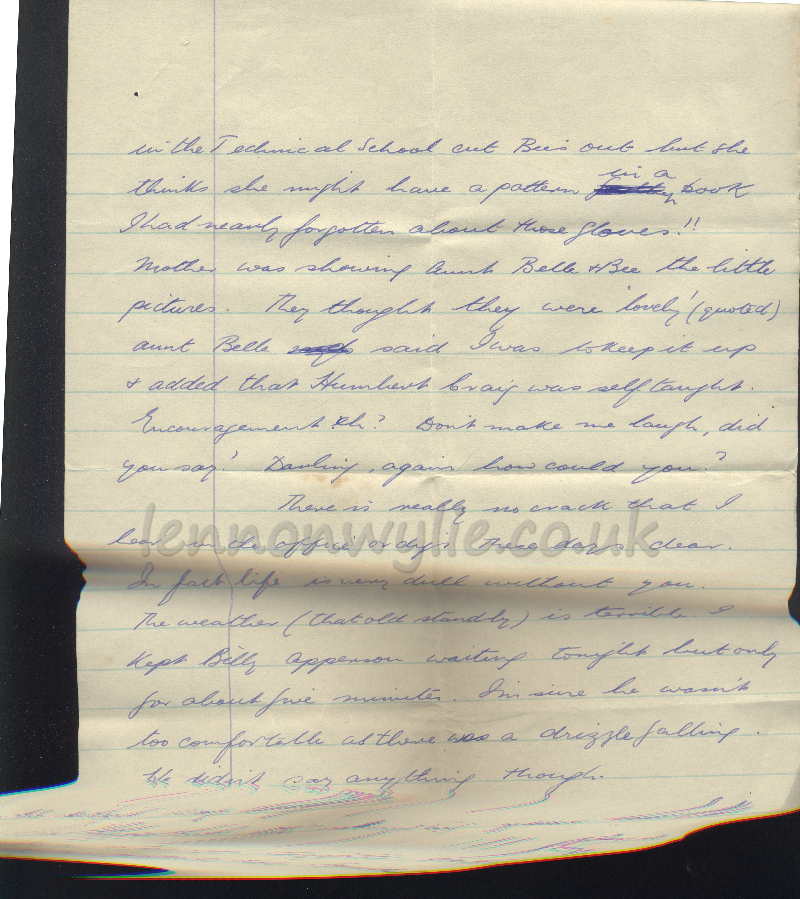 in the Technical School cut Bee's out but she
thinks she might have a pattern in a book
I had nearly forgotten about those gloves!!
Mother was showing Aunt Belle & Bee the little
pictures. They thought they were 'lovely' (quoted)
Aunt Belle said I was to keep it up
& added that Humbert Craig was self taught.
Encouragement Eh? Don't make me laugh, did
you say? Darling, again how could you?
There is really no crack that I
hear in the office or digs these days dear.
In fact life is very dull without you.
The weather (that old standby) is terrible. I
kept Billy Apperson waiting tonight but only
for about five minutes. I'm sure he wasn't
too comfortable as there was a drizzle falling.
He didn't say anything though.
lennonwylie.co.uk